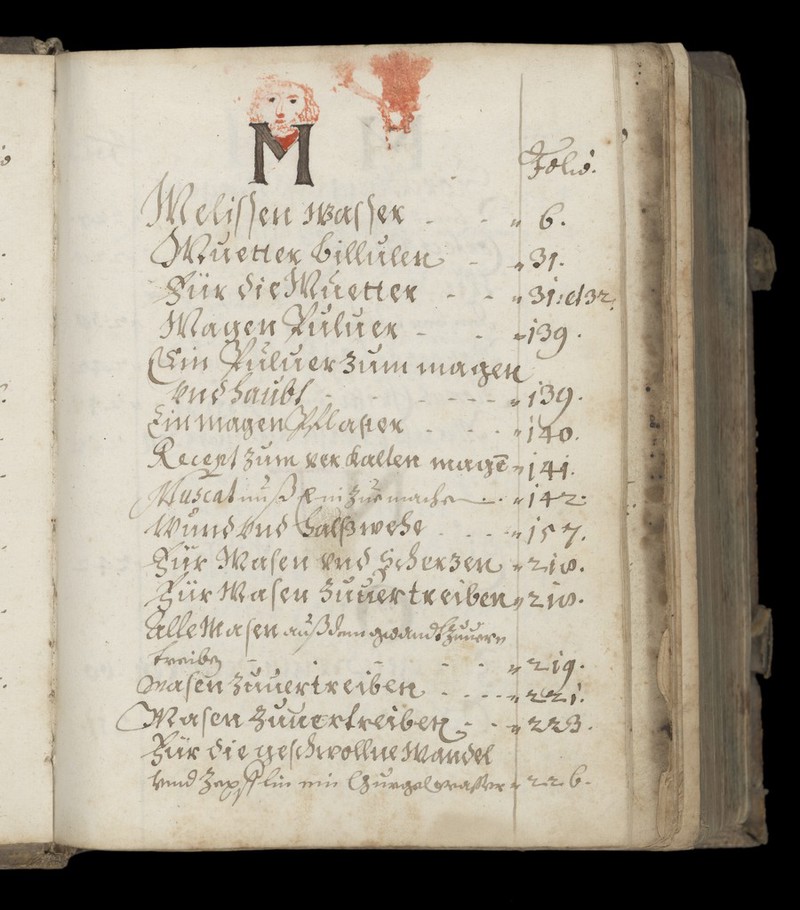 M
Folio.
Melissen Wasser - - " 6.
Muetter Billulen - " 31.
Für die Muetter - - " 31: et 32.
Magen Puluer - - " 139.
Ein Puluer zum magen
vnd haubt - - - - - - " 139.
Ein magen Pflaster - - - " 140.
Recept zum verkalten magē " 141.
Muscat nuß Ein zue mache - " 142.
Mund vnd Halß wehe - - - " 157.
Für Masen vnd Scherzen " 210.
Für Masen zuuertreiben " 210.
Alle Masen auß dem gwandt zuuer
treiben - - - - " 219.
Masen zuuertreiben - - - - " 221.
Masen zuuertreiben - - " 223.
Für die geschwollne Mandel
vnnd Zäpflin ein Gurgelwasser " 226.